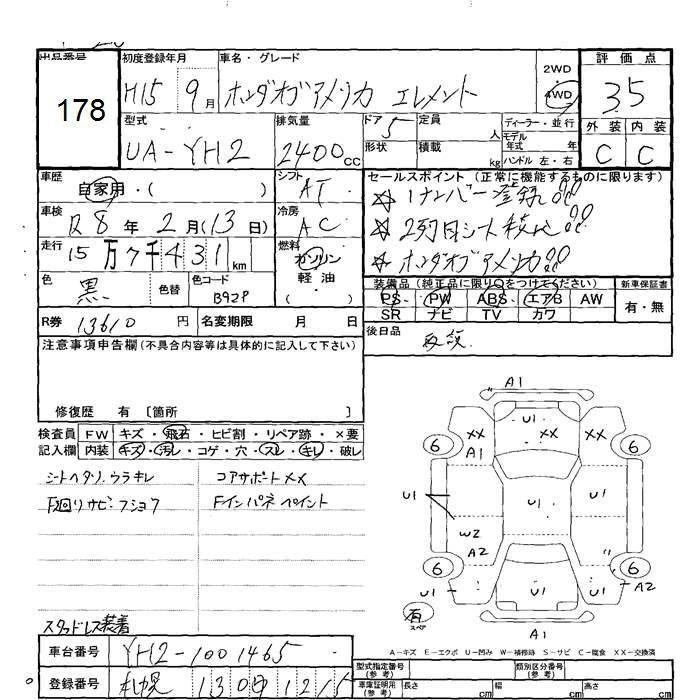 出品番号 初度登録年月 車名・グレード 2WD 評価点
178 H15 9月 ホンダオブアメリカ エレメント 4WD 3.5
型式 排気量 ドア 5 定員 人 ディーラー・並行 外装 内装
UA-YH2 2400cc 形状 積載 kg モデル年式 年式 ハンドル 左・右 C C
車歴 シフト セールスポイント (正常に機能するものに限ります)
自家用・( ) AT ☆ 1ナンバー登録!!
車検 冷房 ☆ 2列目シート
R8年 2月(13日) AC ☆ ホンダオブアメリカ!!
走行 燃料
15万7千431km ガソリン
色 色替 色コード 軽油
黒 B92P ( )
装備品 (純正品に限り○をつけてください) 新車保証書
PS PW ABS エアB AW 有・無
SR ナビ TV カワ
R券 13610円 名変期限 月 日 後日品
注意事項申告欄 (不具合内容等は具体的に記入して下さい)
修復歴 有 〔箇所 〕
検査員 FW キズ・飛石・ヒビ割・リペア跡・×要
記入欄 内装 キズ・汚レ・コゲ・穴・スレ・キレ・破レ
シートヘタリ、ウラキレ コアサポートXX
下回りサビ・フショク Fインパネペイント
A1
U1
XX XX
A1
6 6
U1 U1 U1
W2
A2
6 6
U1 U1 U1 A2
有 スペア
A1
スタッドレス装着
A-キズ E-エクボ U-凹み W-補修跡 S-サビ C-腐食 XX-交換済
車台番号 YH2-1001465 型式指定番号 (参考) 類別区分番号 (参考)
登録番号 札幌 130 車庫証明用 (参考) 長さ cm 幅 cm 高さ cm